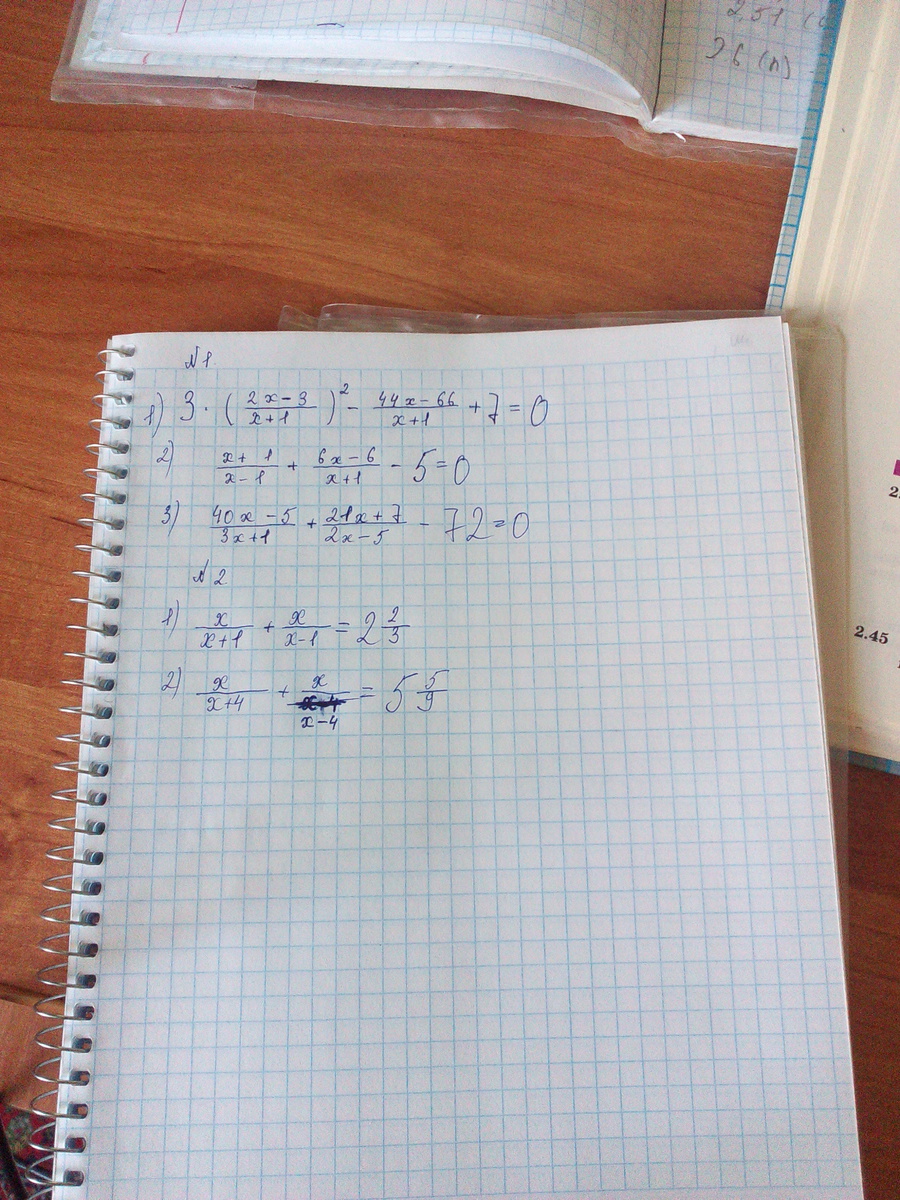 251
26 (п)
N1
1) 3 · ( (2x-3)/(x+1) )² - (44x-66)/(x+1) + 7 = 0
2) (x+1)/(x-1) + (6x-6)/(x+1) - 5 = 0
3) (40x-5)/(3x+1) + (21x+7)/(2x-5) - 72 = 0
N2
1) x/(x+1) + x/(x-1) = 2 2/3
2) x/(x+4) + x/(x-4) = 5 5/9
2.45